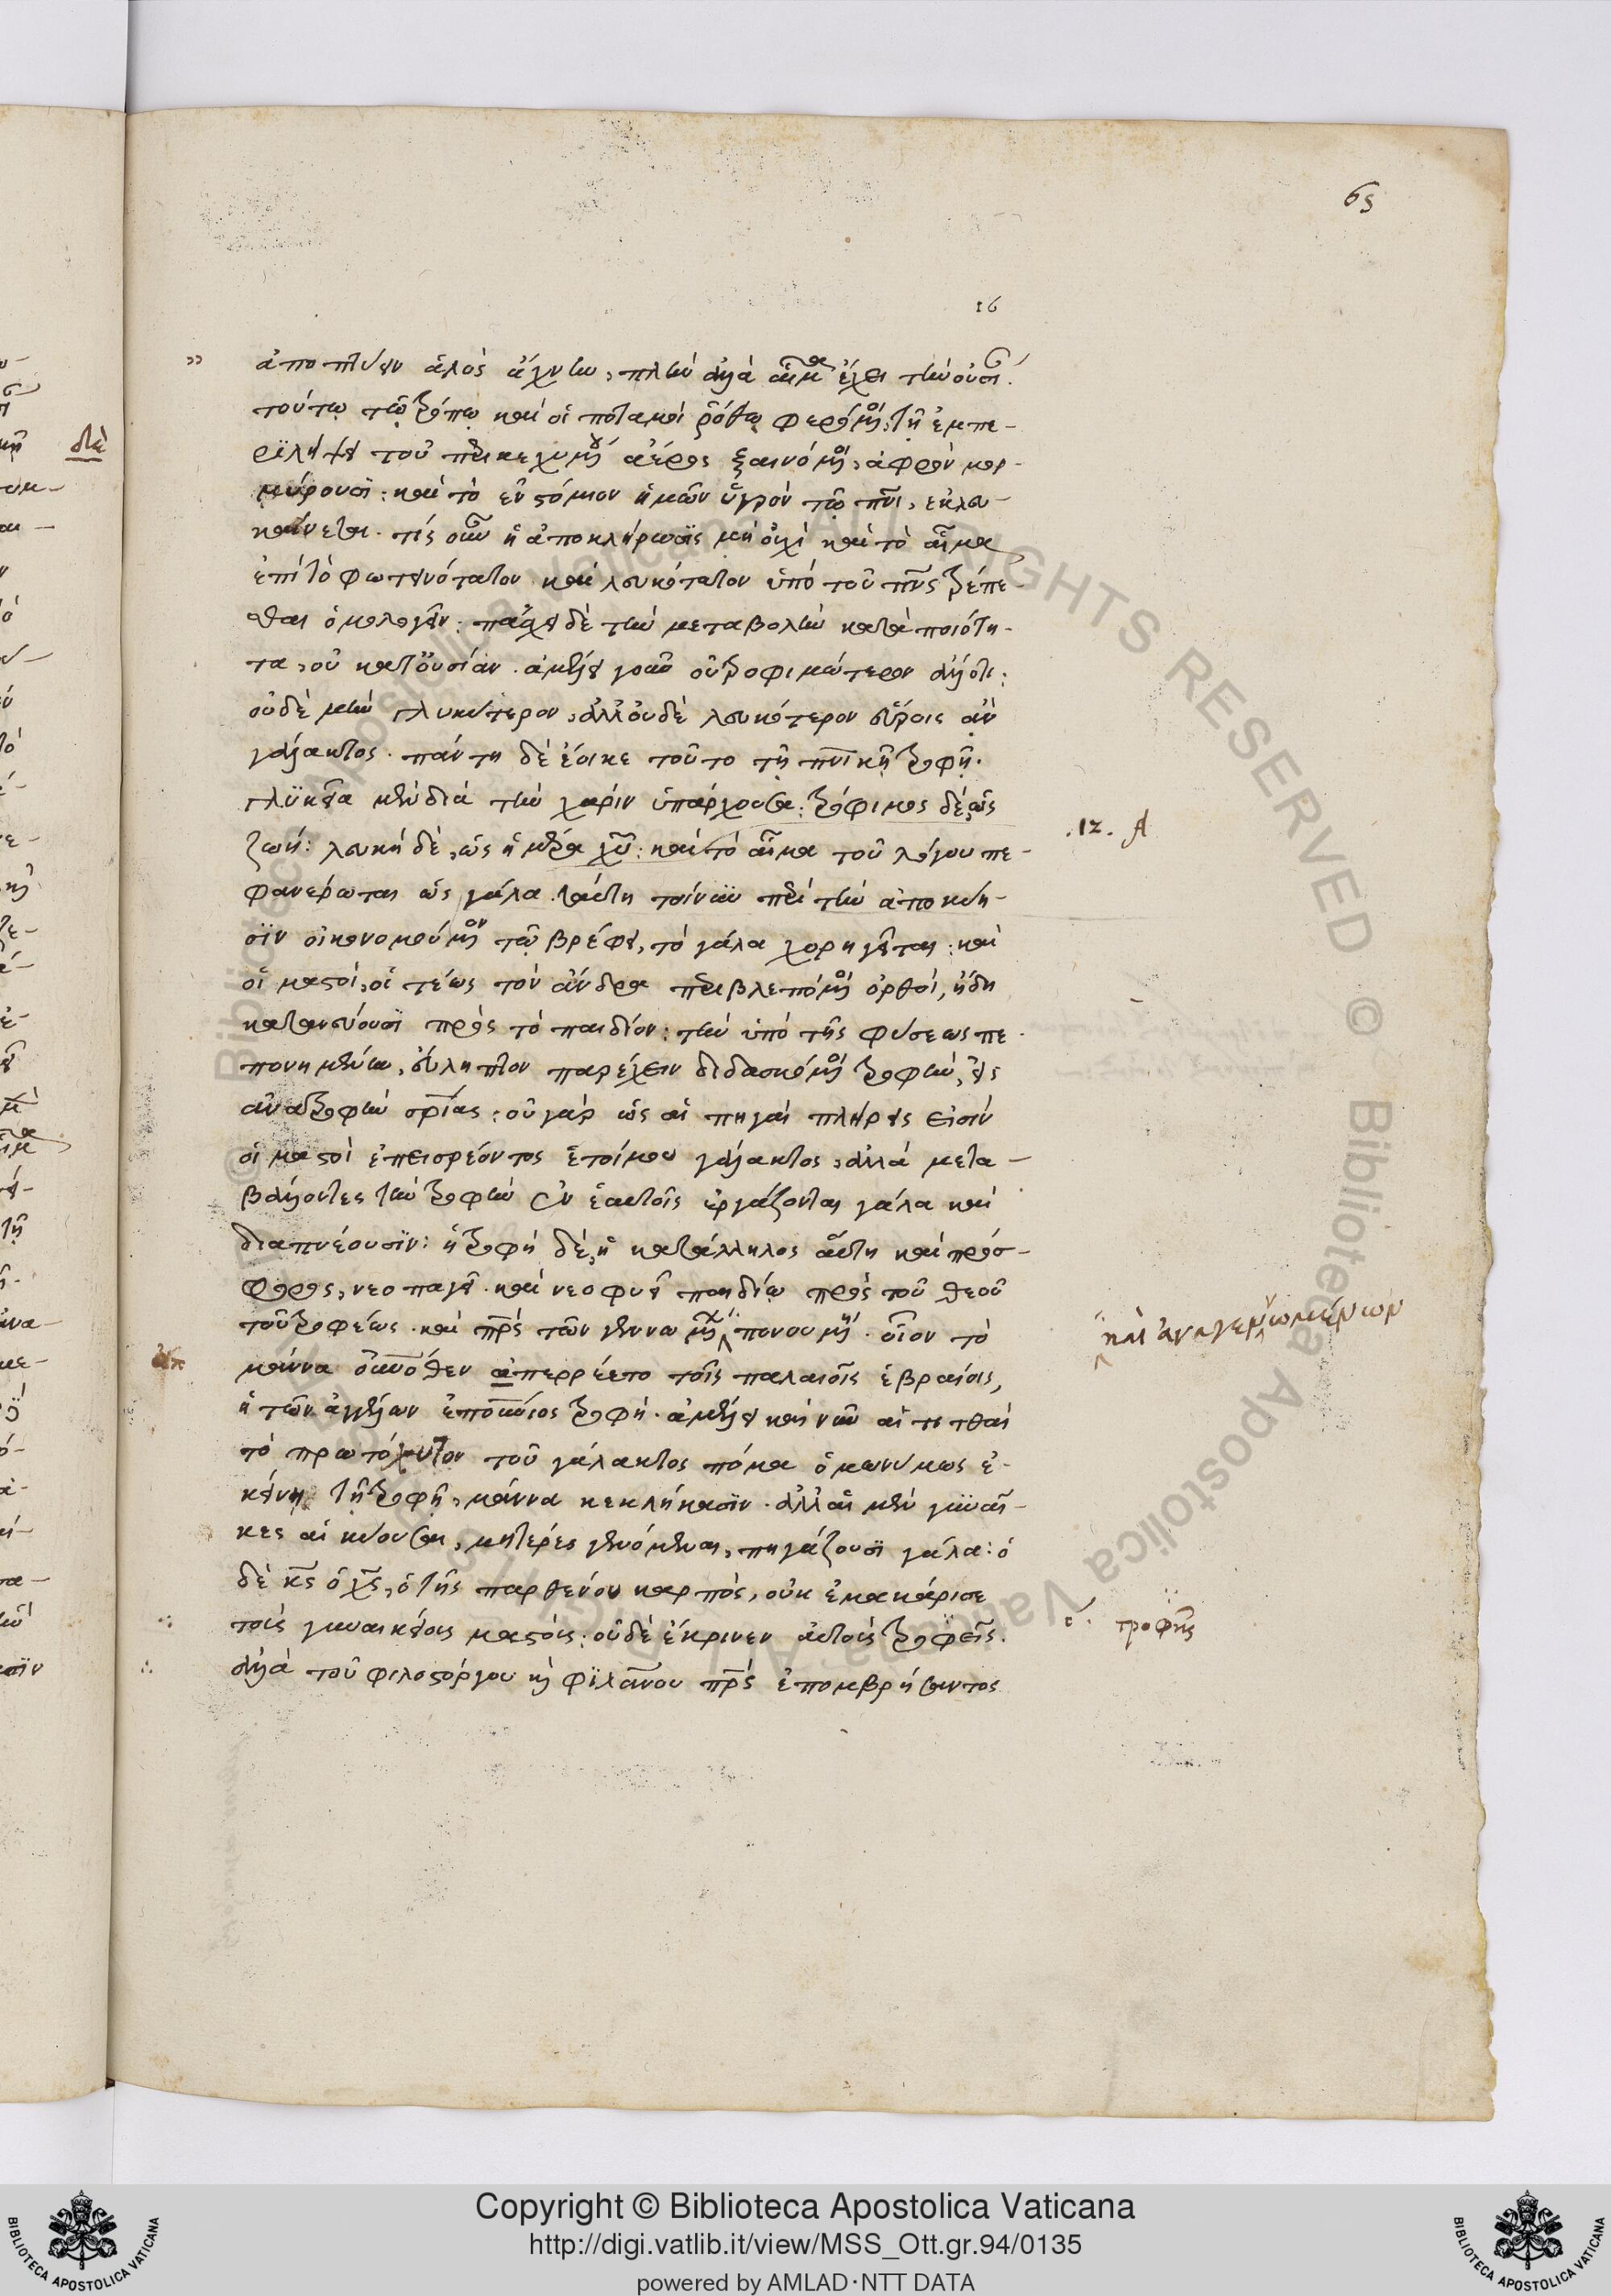 65
16
ἀποπτύειν ἁλὸς ἄχνην, πλὴν ἀλλὰ αἷμα ἔχει τὴν οὐσί.
τούτῳ τῷ τρόπῳ καὶ οἱ ποταμοὶ ῥόθῳ φερόμ(εν)οι, τῇ ἐμπε-
ριλήψει τοῦ περικεχυμ(έν)ου ἀέρος ξαινόμ(εν)οι, ἀφρὸν μορ-
μύρουσι: καὶ τὸ ἐν στόμιον ἡμῶν ὑγρὸν τῷ πνι, ἐκλευ-
καίνεται. τίς οὖν ἡ ἀποκλήρωσις μὴ οὐχὶ καὶ τὸ αἷμα
ἐπὶ τὸ φωτεινότατον καὶ λευκότατον ὑπὸ τοῦ πνς τρέπε-
σθαι ὁμολογεῖν: πάσχει δὲ τὴν μεταβολὴν κατὰ ποιότη-
τα, οὐ κατ' οὐσίαν. ἀμέλει γοῦν οὐ τροφιμώτερον ἄλλό τι:
οὐδὲ μὴν γλυκύτερον, ἀλλ' οὐδὲ λευκότερον εὕροις ἂν
γάλακτος. πάντη δὲ ἔοικε τοῦτο τῇ πνικῇ τροφῇ.
γλυκεῖα μὲν διὰ τὴν χάριν ὑπάρχουσα: τρόφιμος δὲ, ὡς
ζωή: λευκὴ δὲ, ὡς ἡ ἡμέρα χῦ: καὶ τὸ αἷμα τοῦ λόγου πε-
.12. A
φανέρωται ὡς γάλα. ταύτῃ τοίνυν περὶ τὴν ἀποκύη-
σιν οἰκονομούμ(εν)ον τῷ βρέφει, τὸ γάλα χορηγεῖται: καὶ
οἱ μαστοὶ, οἱ τέως τὸν ἄνδρα περιβλεπόμ(εν)οι ὀρθοὶ, ἤδη
κατανεύουσι πρὸς τὸ παιδίον: τὴν ὑπὸ τῆς φύσεως πε-
πονημένην, εὔληπτον παρέχειν διδασκόμ(εν)οι τροφὴν, εἰς
ἀνατροφὴν σρίας: οὐ γὰρ ὡς αἱ πηγαὶ πλήρεις εἰσὶν
οἱ μαστοὶ ἐπεισρέοντος ἑτοίμου γάλακτος, ἀλλὰ μετα-
βάλλοντες τὴν τροφὴν ἐν ἑαυτοῖς ἐργάζονται γάλα καὶ
διαπνέουσιν: ἡ τροφὴ δὲ, ἡ κατάλληλος αὕτη καὶ πρόσ-
φορος, νεοπαγεῖ καὶ νεοφυεῖ παιδίῳ πρὸς τοῦ θεοῦ
τοῦ τροφέως. καὶ πρς τῶν γεννωμ(έν)ων πονουμ(έν)η. οἷον τὸ
καὶ ἀναγεννωμένων
μάννα οὐνόθεν ἀπερρέετο τοῖς παλαιοῖς ἑβραίοις,
ἡ τῶν ἀγγέλων ἐπουνιος τροφή. ἀμέλει καὶ νῦν αἱ τιτθαὶ
τὸ πρωτόχυτον τοῦ γάλακτος πόμα ὁμωνύμως ἐ-
κείνῃ τῇ τροφῇ, μάννα κεκλήκασιν. ἀλλ' αἱ μὲν γυναῖ-
κες αἱ κύουσαι, μητέρες γενόμεναι, πηγάζουσι γάλα: ὁ
δὲ κς ὁ χς, ὁ τῆς παρθένου καρπὸς, οὐκ ἐμακάρισε
τοὺς γυναικείους μαστούς: οὐδὲ ἔκρινεν αὐτοὺς τροφεῖς.
τροφῆς
ἀλλὰ τοῦ φιλοστόργου κ(αὶ) φιλανου πρς ἐπομβρήσαντος
Copyright © Biblioteca Apostolica Vaticana
http://digi.vatlib.it/view/MSS_Ott.gr.94/0135
powered by AMLAD·NTT DATA